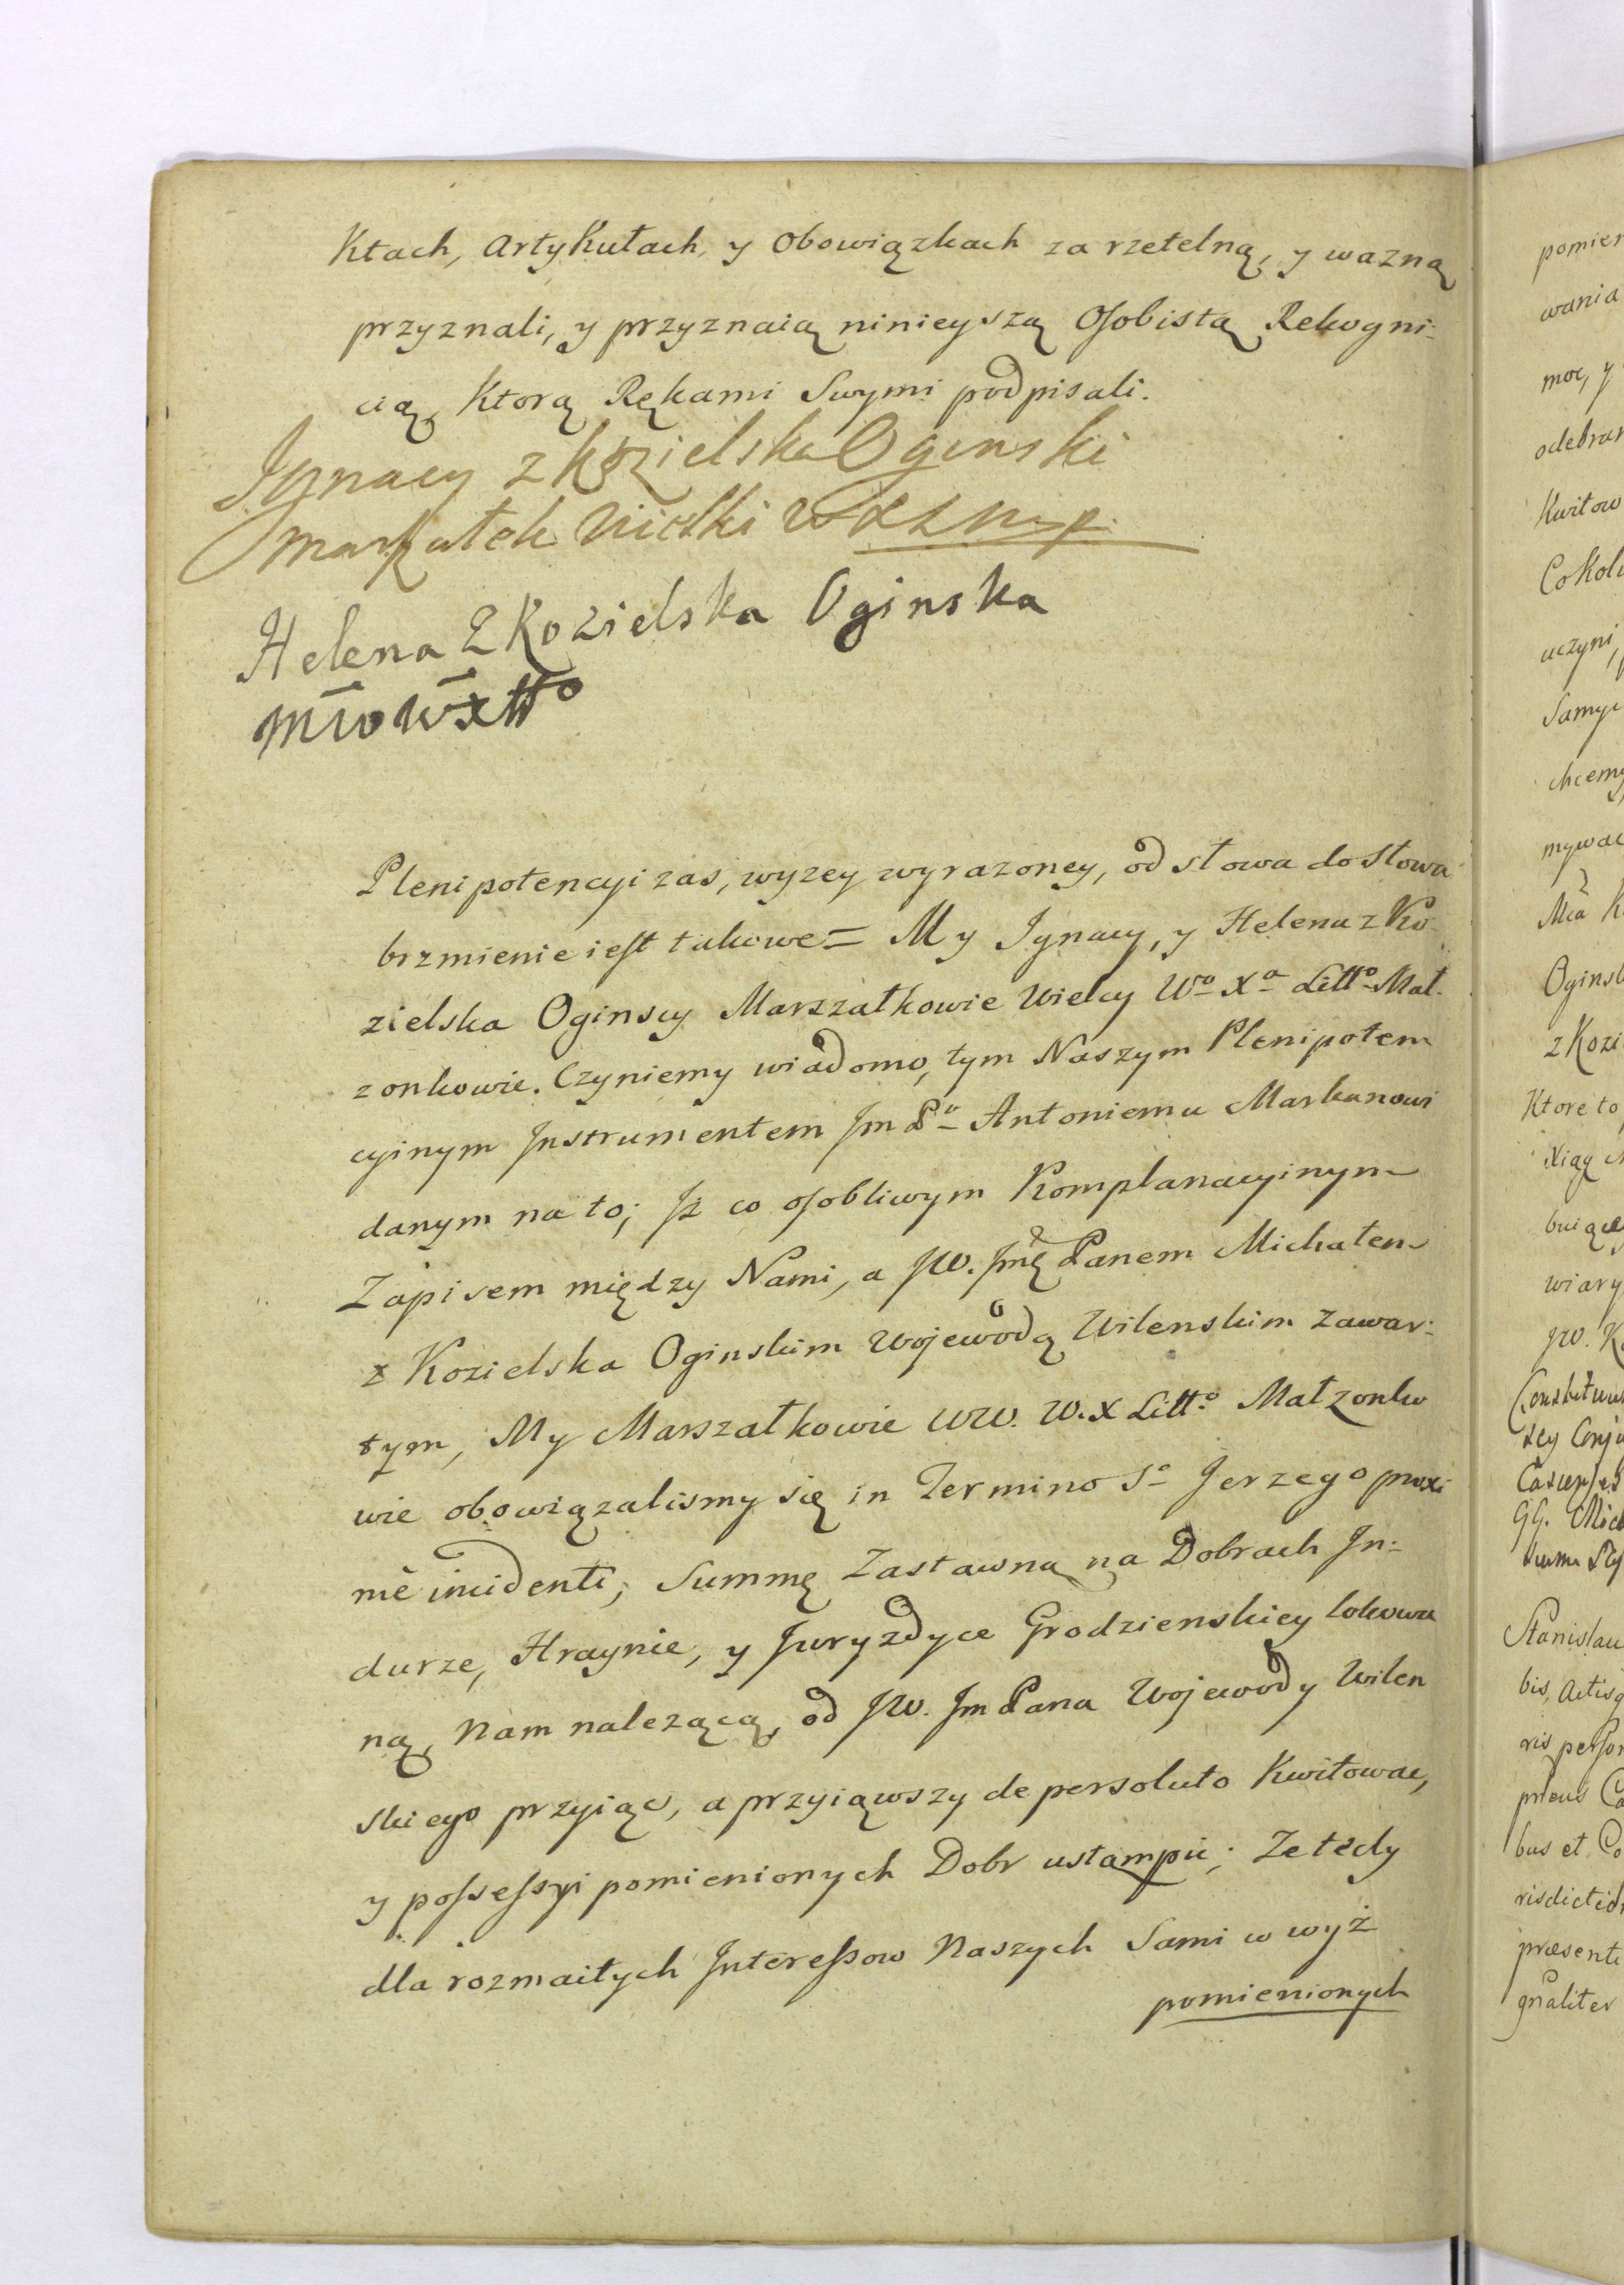 Ktach, Artykułach, y Obowiązkach za rzetelną, y wazną
przyznali, y przyznaią ninieyszą Osobistą Rekogni-
cią, Ktorą Rękami Swymi podpisali.
Ignacy z Kozielska Oginski
Marszałek Wielki WXL mp.
Helena Z Kozielska Oginska
MWWXLtto
Plenipotencyi zas, wyzey wyrazoney, od słowa do słowa
brzmienie iest takowe = My Ignacy, y Helena z Ko-
zielska Oginscy Marszałkowie Wielcy Wo Xa Litto Mał-
zonkowie. Czyniemy wiadomo, tym Naszym Plenipotem
cyinym Instrumentem Jm Pu Antoniemu Markanowi
danym na to; Iż co osobliwym Komplanacyinym
Zapisem między Nami, a JW. Jmę Panem Michałem
z Kozielska Oginskim Wojewodą Wilenskim zawar-
tym, My Marszałkowie WW. W. X Litto Małzonko
wie obowiązalismy się in Termino So Jerzego proxi
me incidenti, Summę Zastawną na Dobrach In-
durze, Hraynie, y Juryzdyce Grodzienskiey lokowa
ną, Nam nalezącą, od JW. Jm Pana Wojewody Wilen
skiego przyiąc, a przyiąwszy de persoluto Kwitowac,
y possessyi pomienionych Dobr ustąmpic; Ze tedy
dla rozmaitych Interessow Naszych Sami w wyż
pomienionych
pomien
wania
moc, y
odebran
Kwitow
Cokolw
uczyni,
Samych
chcemy
mywac
Oginsk
z Kozi
Ktore to
Xiąg
wiary
JW. K
Stanislau
bis, Actisq
ris person
bus et Co
risdictio
præsenti
gnaliter